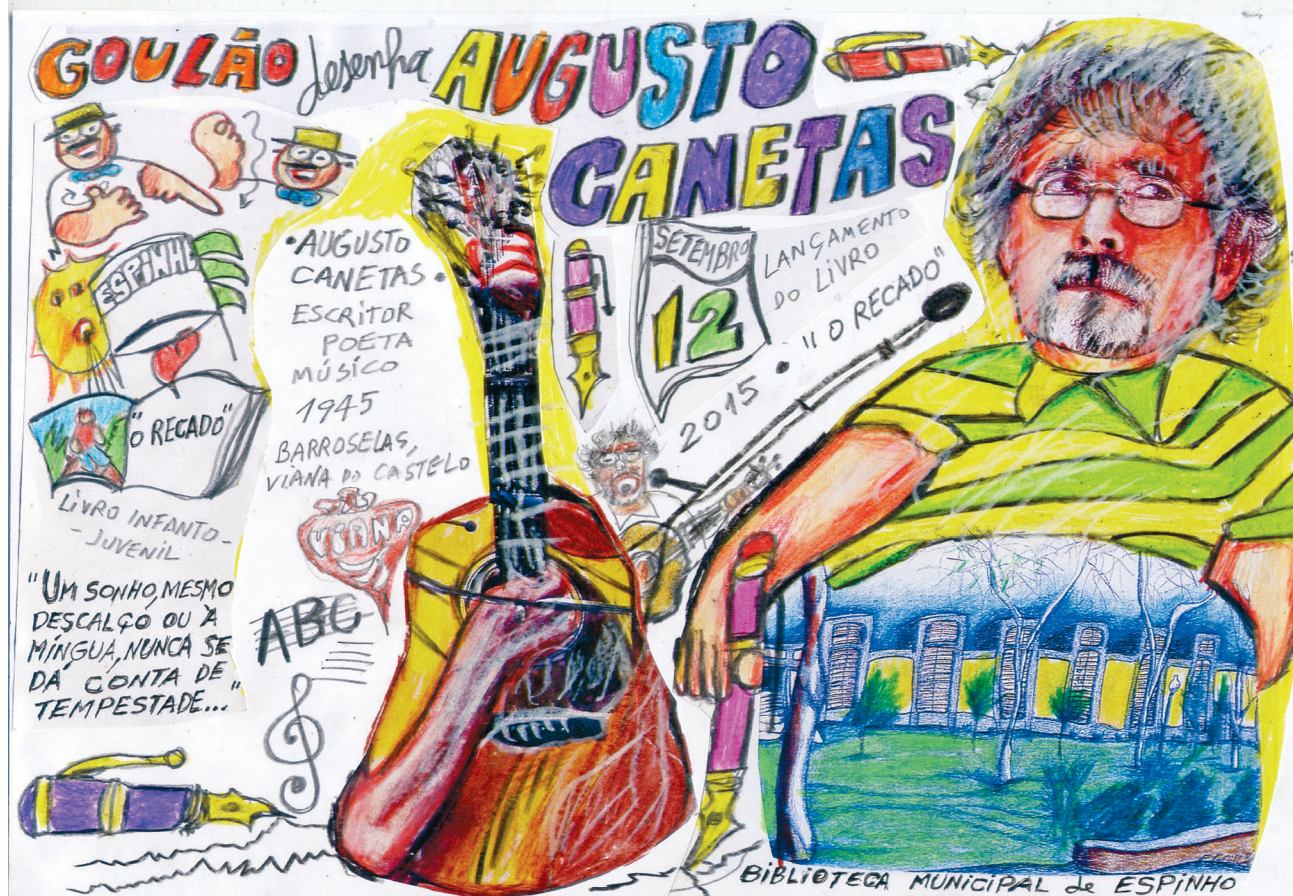 GOULÃO desenha AUGUSTO
CANETAS
ESPINHO
"O RECADO"
LIVRO INFANTO-
-JUVENIL
"UM SONHO, MESMO
DESCALÇO OU À
MÍNGUA, NUNCA SE
DÁ CONTA DE
TEMPESTADE..."
•AUGUSTO
CANETAS•
ESCRITOR
POETA
MÚSICO
1945
BARROSELAS,
VIANA DO CASTELO
VIANA
ABC
SETEMBRO
12
LANÇAMENTO
DO LIVRO
2015 • "O RECADO"
BIBLIOTECA MUNICIPAL de ESPINHO